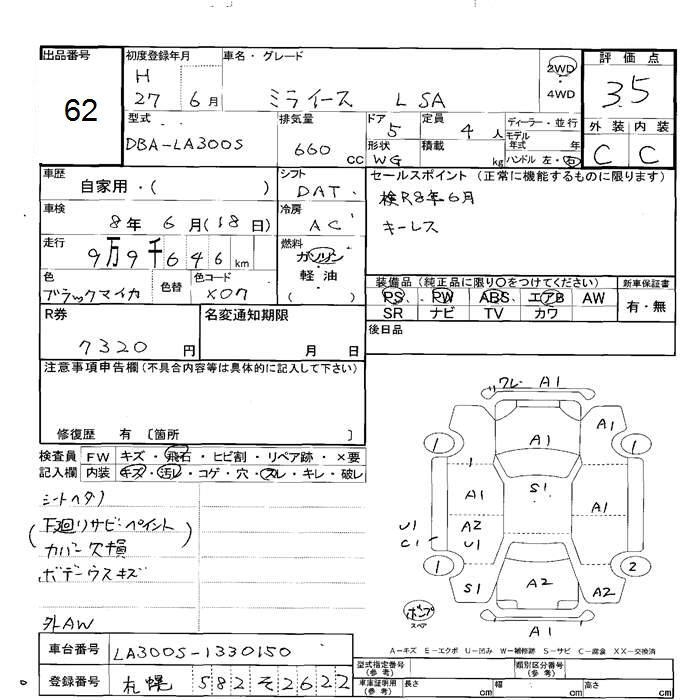 出品番号
62
初度登録年月
H
27 6月
車名・グレード
ミライース L SA
2WD
・
4WD
評価点
3.5
外装 内装
C C
型式
DBA-LA300S
排気量
660 cc
ドア
5
形状
WG
定員
4 人
積載
kg
ディーラー・並行
モデル
年式 年
ハンドル 左・右
車歴
自家用・( )
シフト
DAT
セールスポイント (正常に機能するものに限ります)
検R8年6月
キーレス
車検
8年 6月(18日)
冷房
AC
走行
9万9千646km
燃料
ガソリン
軽油
( )
色
ブラックマイカ
色替
色コード
X07
装備品 (純正品に限り○をつけてください)
PS PW ABS エアB AW
SR ナビ TV カワ
新車保証書
有・無
R券
7320円
名変通知期限
月 日
後日品
注意事項申告欄 (不具合内容等は具体的に記入して下さい)
修復歴 有 〔箇所 〕
検査員
記入欄
FW キズ・飛石・ヒビ割・リペア跡・×要
内装 キズ・汚レ・コゲ・穴・スレ・キレ・破レ
シートヘタリ
(下廻りサビ・ペイント
カバー欠損)
ボデーウスキズ
外AW
ワレ A1
A1
1 1
A1
1
S1
A1 A1
U1 A2
C1 U1
1 2
S1 A2 A2
ポンプ
スペア
A1
A－キズ E－エクボ U－凹み W－補修跡 S－サビ C－腐食 XX－交換済
車台番号
LA300S-1330150
登録番号
札幌 582 そ 2622
型式指定番号
(参考)
類別区分番号
(参考)
車庫証明用
(参考)
長さ cm
幅 cm
高さ cm